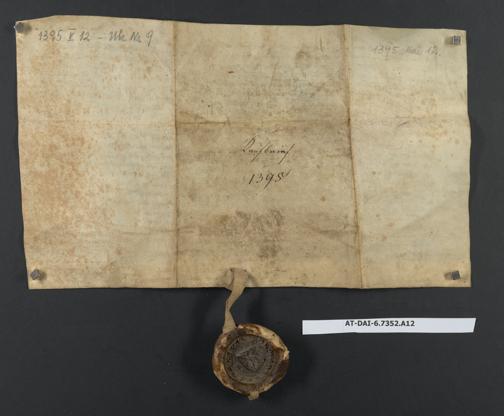 1395 V 12 - Uk Nr 9
1395 Mai 12.
Kaufbrief
1395
AT-DAI-6.7352.A12